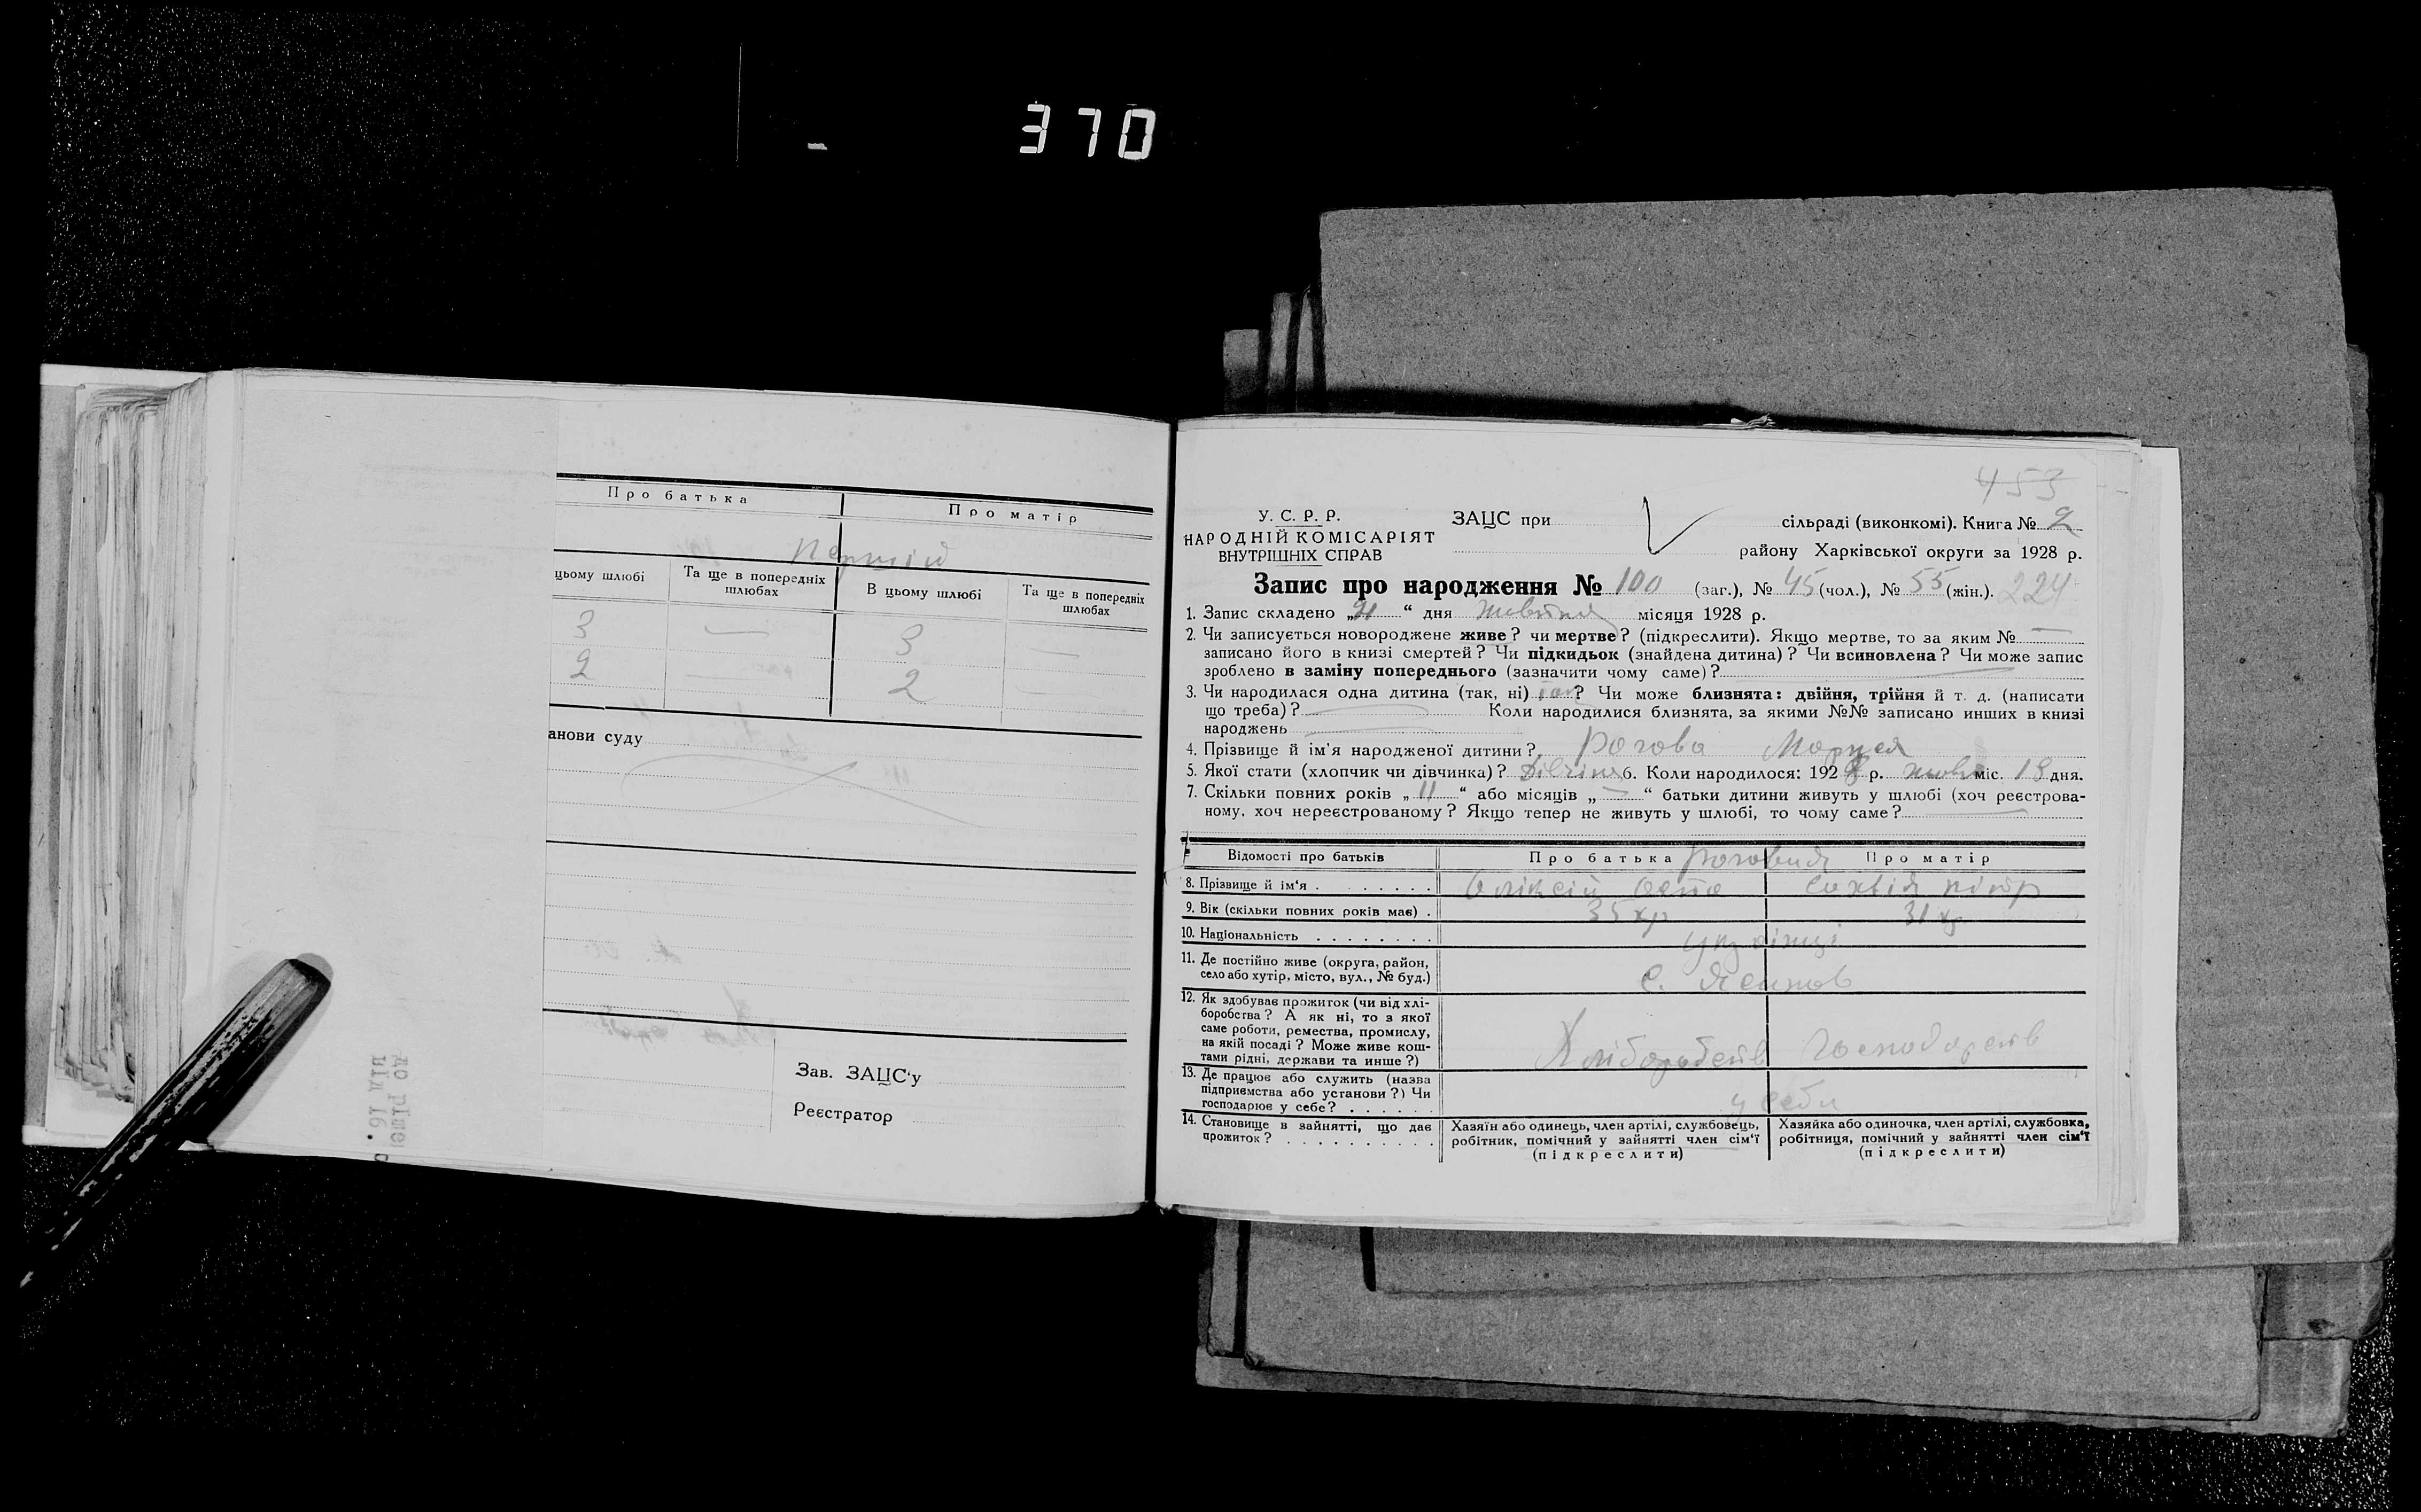 370
Про батька
Про матір
Перший
цьому шлюбі
Та ще в попередніх шлюбах
В цьому шлюбі
Та ще в попередніх шлюбах
3 — 3 —
2 — 2 —
анови суду
Зав. ЗАЦС'у
Реєстратор
453
У. С. Р. Р.
НАРОДНІЙ КОМІСАРІЯТ
ВНУТРІШНІХ СПРАВ
ЗАЦС при сільраді (виконкомі). Книга № 2
району Харківської округи за 1928 р.
Запис про народження № 100 (заг.), № 45 (чол.), № 55 (жін.). 224
1. Запис складено „21“ дня жовтня місяця 1928 р.
2. Чи записується новороджене живе? чи мертве? (підкреслити). Якщо мертве, то за яким № —
записано його в книзі смертей? Чи підкидьок (знайдена дитина)? Чи всиновлена? Чи може запис
зроблено в заміну попереднього (зазначити чому саме)?
3. Чи народилася одна дитина (так, ні) так? Чи може близнята: двійня, трійня й т. д. (написати
що треба)? Коли народилися близнята, за якими №№ записано инших в книзі
народжень
4. Прізвище й ім'я народженої дитини? Рогова Маруся
5. Якої стати (хлопчик чи дівчинка)? Дівчина 6. Коли народилося: 1928 р. жовт міс. 18 дня.
7. Скільки повних років „11“ або місяців „—“ батьки дитини живуть у шлюбі (хоч реєстрова-
ному, хоч нереєстрованому? Якщо тепер не живуть у шлюбі, то чому саме?
Відомості про батьків
Про батька
Про матір
8. Прізвище й ім'я
9. Вік (скільки повних років має) . 35 31
10. Національність українці
11. Де постійно живе (округа, район,
село або хутір, місто, вул., № буд.)
с.
12. Як здобуває прожиток (чи від хлі-
боробства? А як ні, то з якої
саме роботи, ремества, промислу,
на якій посаді? Може живе кош-
тами рідні, держави та инше?)
13. Де працює або служить (назва
підприємства або установи?) Чи
господарює у себе?
у себи
14. Становище в зайнятті, що дає
прожиток?
Хазяїн або одинець, член артілі, службовець,
робітник, помічний у зайнятті член сім'ї
(підкреслити)
Хазяйка або одиночка, член артілі, службовка,
робітниця, помічний у зайнятті член сім'ї
(підкреслити)